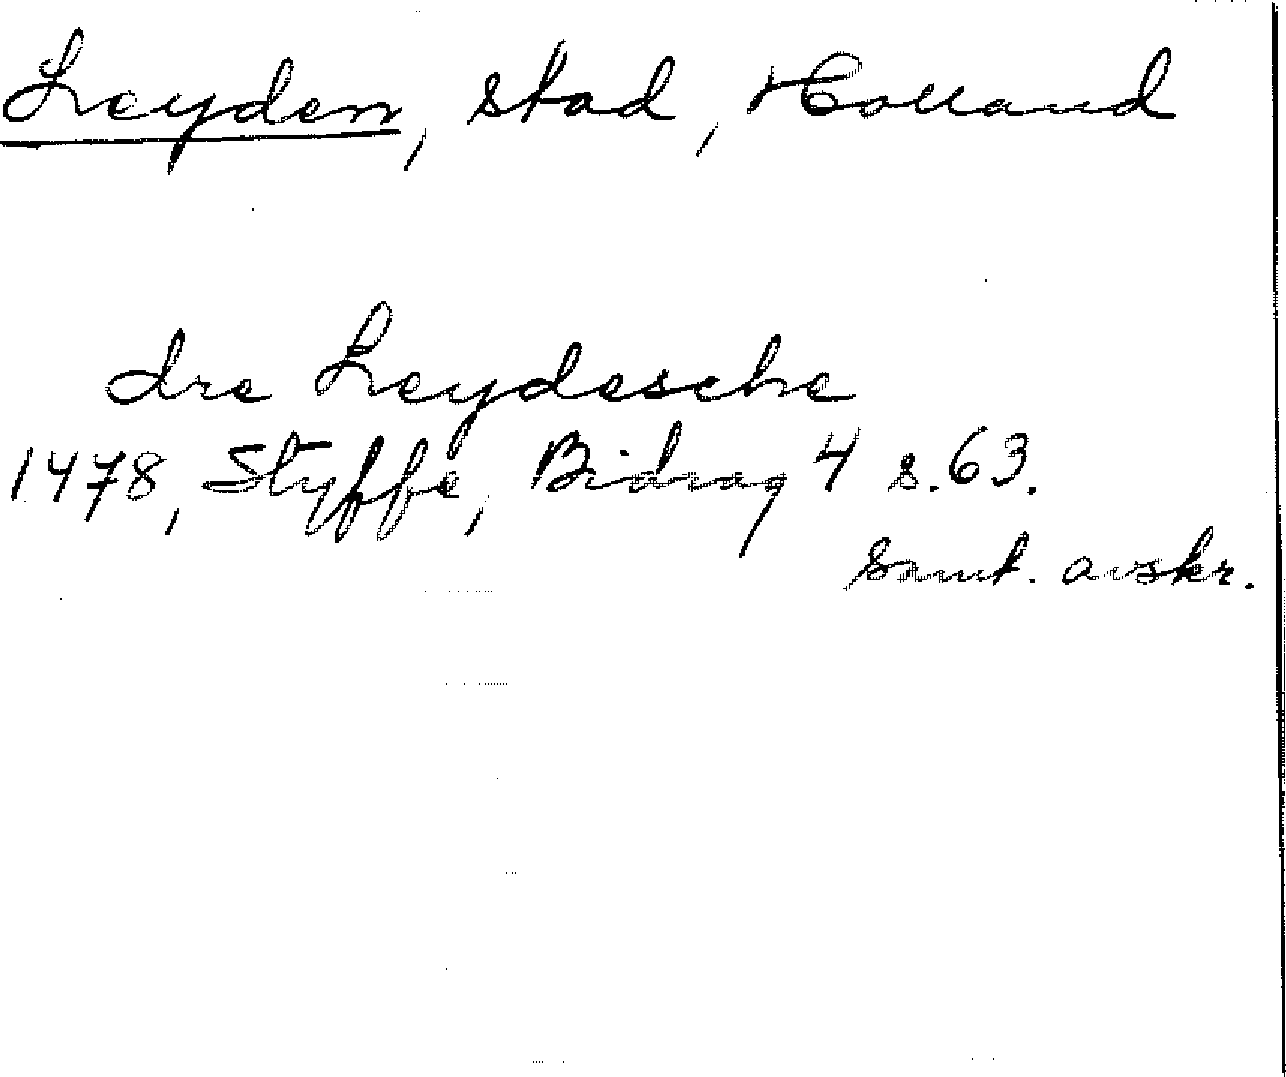 Leyden, stad, Holland
dre Leydesche
1478, Styffe, Bidrag 4 s. 63.
Samt. avskr.